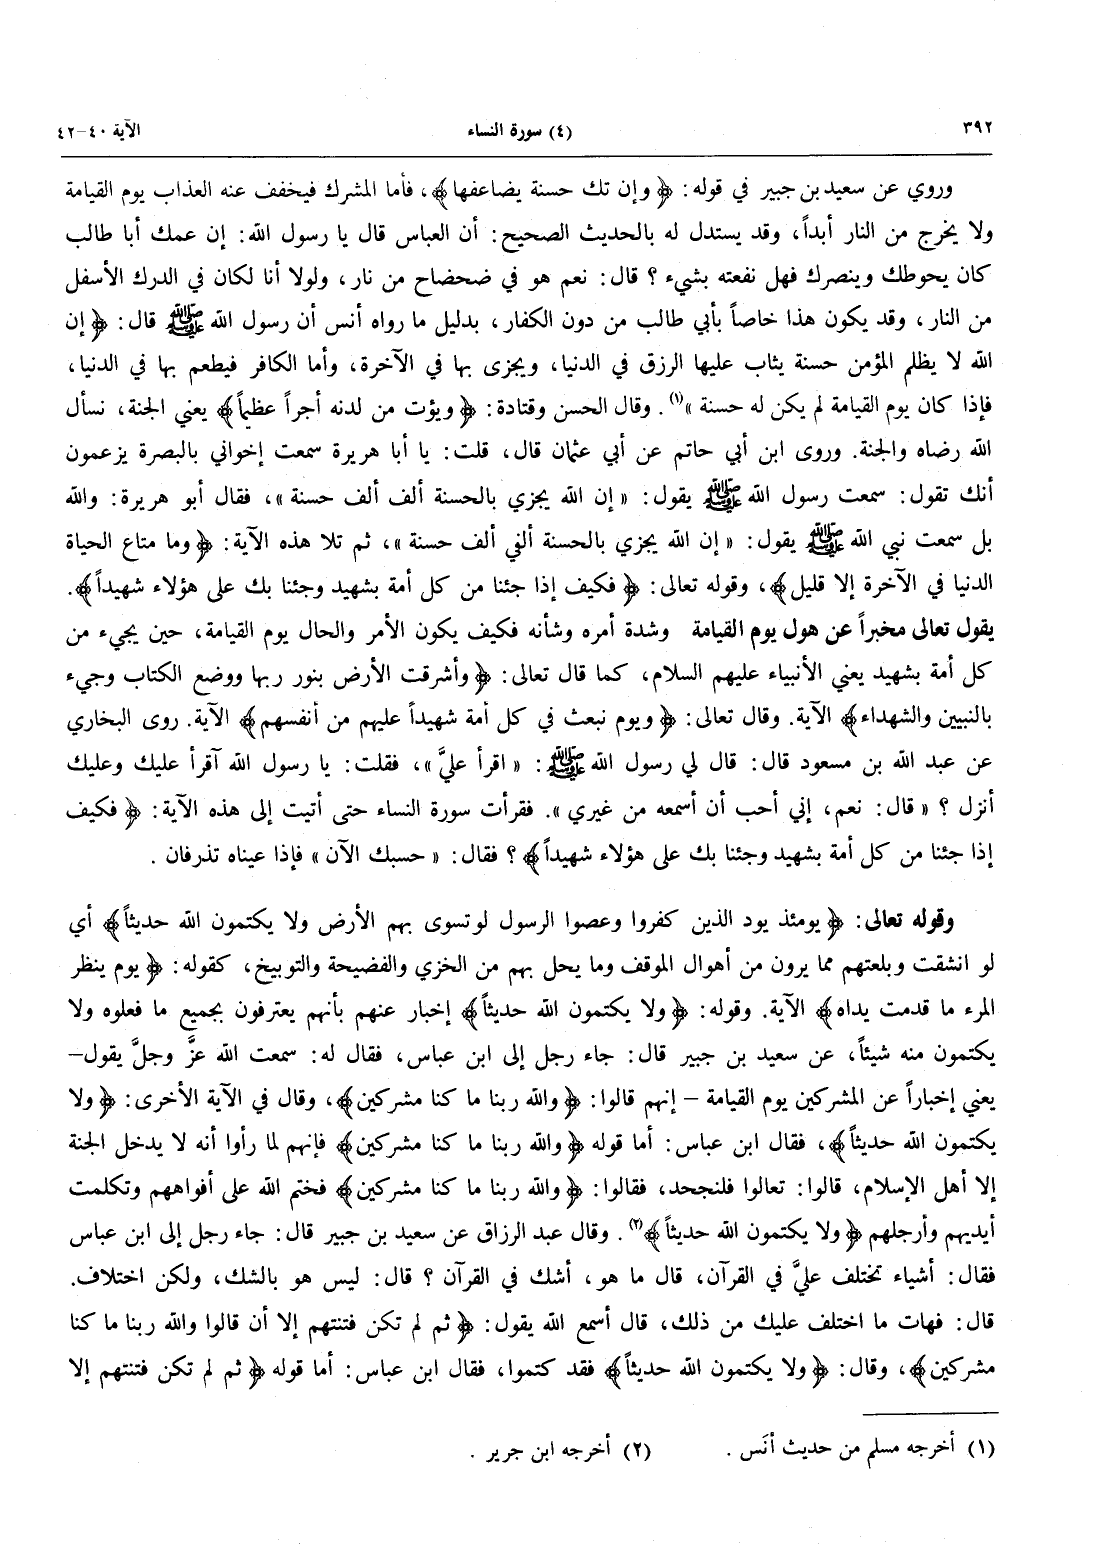 ٣٩٢ (٤) سورة النساء الآية ٤٠-٤٢
وروي عن سعيد بن جبير في قوله: ﴿وإن تك حسنة يضاعفها﴾، فأما المشرك فيخفف عنه العذاب يوم القيامة
ولا يخرج من النار أبداً، وقد يستدل له بالحديث الصحيح: أن العباس قال يا رسول الله: إن عمك أبا طالب
كان يحوطك وينصرك فهل نفعته بشيء ؟ قال: نعم هو في ضحضاح من نار، ولولا أنا لكان في الدرك الأسفل
من النار، وقد يكون هذا خاصاً بأبي طالب من دون الكفار، بدليل ما رواه أنس أن رسول الله ﷺ قال: ﴿إن
الله لا يظلم المؤمن حسنة يثاب عليها الرزق في الدنيا، ويجزى بها في الآخرة، وأما الكافر فيطعم بها في الدنيا،
فإذا كان يوم القيامة لم يكن له حسنة »(١). وقال الحسن وقتادة: ﴿ويؤت من لدنه أجراً عظيماً﴾ يعني الجنة، نسأل
الله رضاه والجنة. وروى ابن أبي حاتم عن أبي عثمان قال، قلت: يا أبا هريرة سمعت إخواني بالبصرة يزعمون
أنك تقول: سمعت رسول الله ﷺ يقول: « إن الله يجزي بالحسنة ألف ألف حسنة »، فقال أبو هريرة: والله
بل سمعت نبي الله ﷺ يقول: « إن الله يجزي بالحسنة ألفي ألف حسنة »، ثم تلا هذه الآية: ﴿وما متاع الحياة
الدنيا في الآخرة إلا قليل﴾، وقوله تعالى: ﴿فكيف إذا جئنا من كل أمة بشهيد وجئنا بك على هؤلاء شهيداً﴾.
يقول تعالى مخبراً عن هول يوم القيامة وشدة أمره وشأنه فكيف يكون الأمر والحال يوم القيامة، حين يجيء من
كل أمة بشهيد يعني الأنبياء عليهم السلام، كما قال تعالى: ﴿وأشرقت الأرض بنور ربها ووضع الكتاب وجيء
بالنبيين والشهداء﴾ الآية. وقال تعالى: ﴿ويوم نبعث في كل أمة شهيداً عليهم من أنفسهم﴾ الآية. روى البخاري
عن عبد الله بن مسعود قال: قال لي رسول الله ﷺ: « اقرأ عليَّ »، فقلت: يا رسول الله آقرأ عليك وعليك
أنزل ؟ « قال: نعم، إني أحب أن أسمعه من غيري ». فقرأت سورة النساء حتى أتيت إلى هذه الآية: ﴿فكيف
إذا جئنا من كل أمة بشهيد وجئنا بك على هؤلاء شهيداً﴾ ؟ فقال: « حسبك الآن » فإذا عيناه تذرفان .
وقوله تعالى: ﴿يومئذ يود الذين كفروا وعصوا الرسول لو تسوى بهم الأرض ولا يكتمون الله حديثاً﴾ أي
لو انشقت وبلعتهم مما يرون من أهوال الموقف وما يحل بهم من الخزي والفضيحة والتوبيخ، كقوله: ﴿يوم ينظر
المرء ما قدمت يداه﴾ الآية. وقوله: ﴿ولا يكتمون الله حديثاً﴾ إخبار عنهم بأنهم يعترفون بجميع ما فعلوه ولا
يكتمون منه شيئاً، عن سعيد بن جبير قال: جاء رجل إلى ابن عباس، فقال له: سمعت الله عزَّ وجلَّ يقول–
يعني إخباراً عن المشركين يوم القيامة – إنهم قالوا: ﴿والله ربنا ما كنا مشركين﴾، وقال في الآية الأخرى: ﴿ولا
يكتمون الله حديثاً﴾، فقال ابن عباس: أما قوله ﴿والله ربنا ما كنا مشركين﴾ فإنهم لما رأوا أنه لا يدخل الجنة
إلا أهل الإسلام، قالوا: تعالوا فلنجحد، فقالوا: ﴿والله ربنا ما كنا مشركين﴾ فختم الله على أفواههم وتكلمت
أيديهم وأرجلهم ﴿ولا يكتمون الله حديثاً﴾(٢). وقال عبد الرزاق عن سعيد بن جبير قال: جاء رجل إلى ابن عباس
فقال: أشياء تختلف عليَّ في القرآن، قال ما هو، أشك في القرآن ؟ قال: ليس هو بالشك، ولكن اختلاف.
قال: فهات ما اختلف عليك من ذلك، قال أسمع الله يقول: ﴿ثم لم تكن فتنتهم إلا أن قالوا والله ربنا ما كنا
مشركين﴾، وقال: ﴿ولا يكتمون الله حديثاً﴾ فقد كتموا، فقال ابن عباس: أما قوله ﴿ثم لم تكن فتنتهم إلا
(١) أخرجه مسلم من حديث أنَس . (٢) أخرجه ابن جرير .